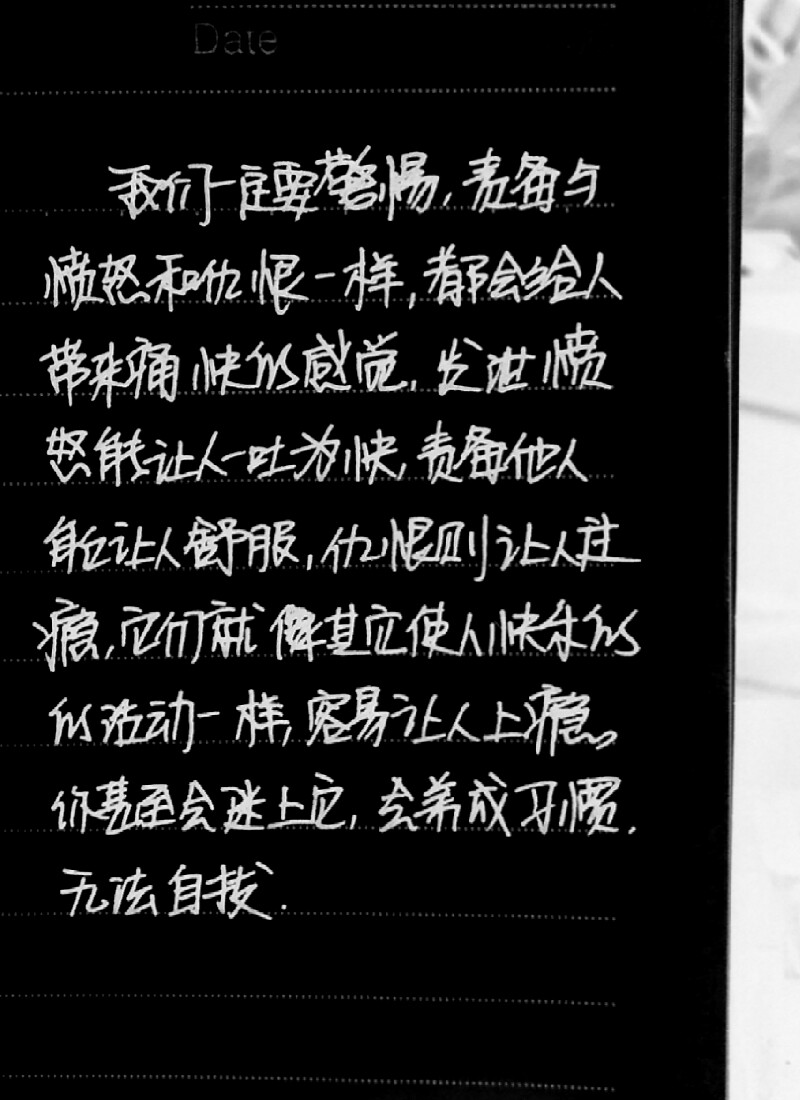 Date
我们一定要警惕,责备与
愤怒和仇恨一样,都会给人
带来痛快的感觉,发泄愤
怒能让人一吐为快,责备他人
能让人舒服,仇恨则让人过
瘾,它们就像其它使人快乐的
的活动一样,容易让人上瘾。
你甚至会迷上它,会养成习惯.
无法自拔.